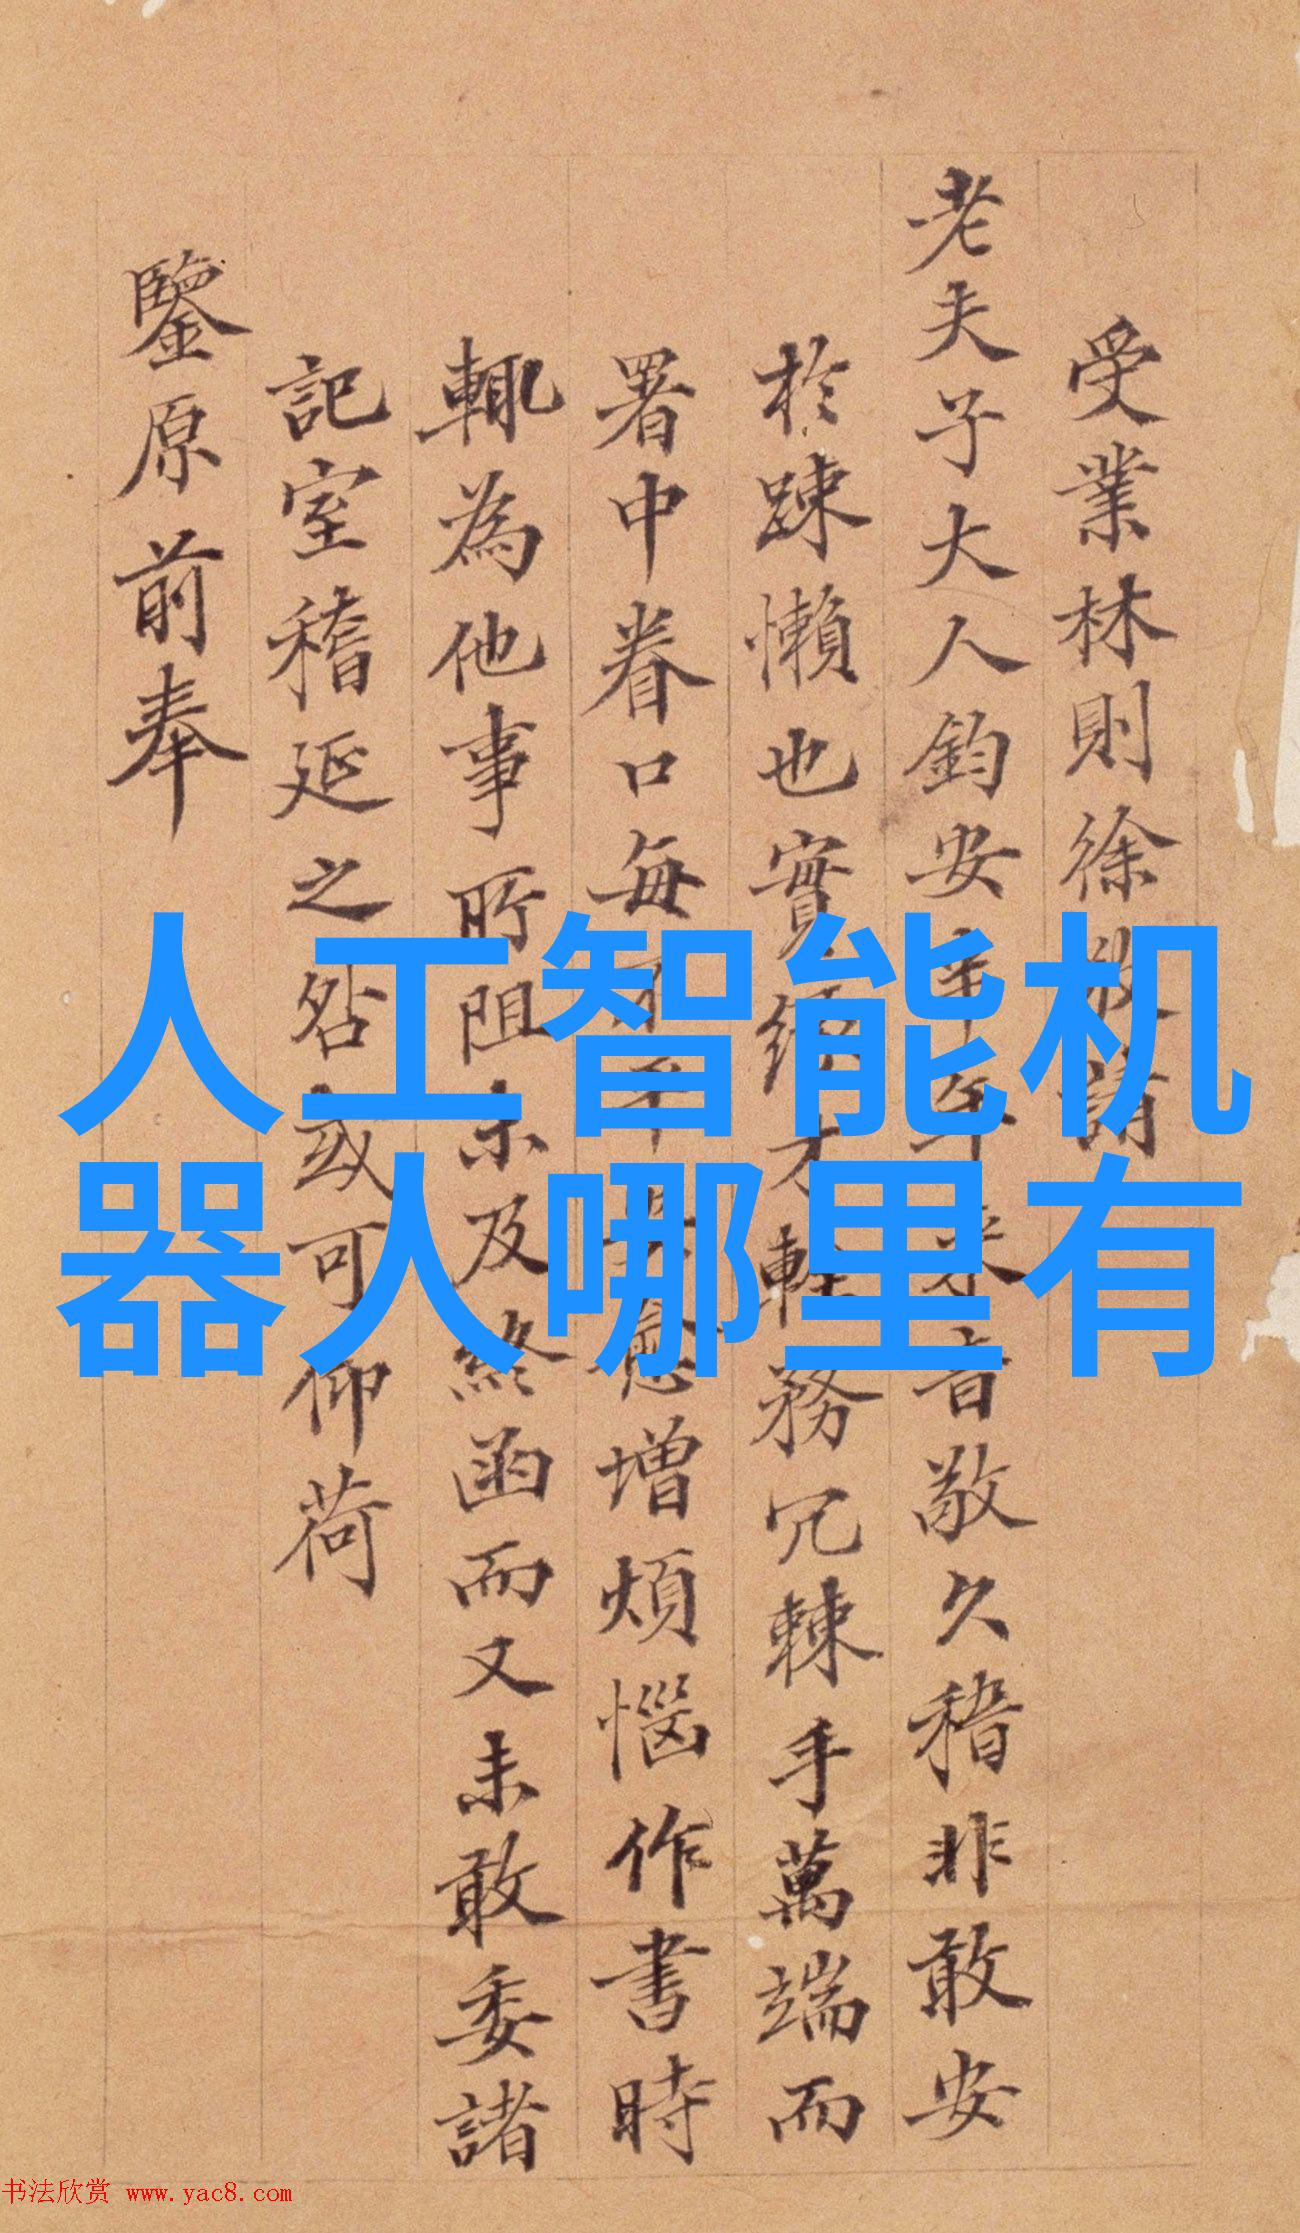 受業林則徐敬請
老夫子大人鈞安半年来音敬久稽非敢安
於踈懶也實緣才輇務冗棘手萬端而
署中眷口每愈增煩惱作書時
輒為他事所阻未及終函而又未敢委諸
記室稽延之咎或可仰荷
鑒原前奉
人工智能机
器人哪里有
书法欣赏 www.yac8.com